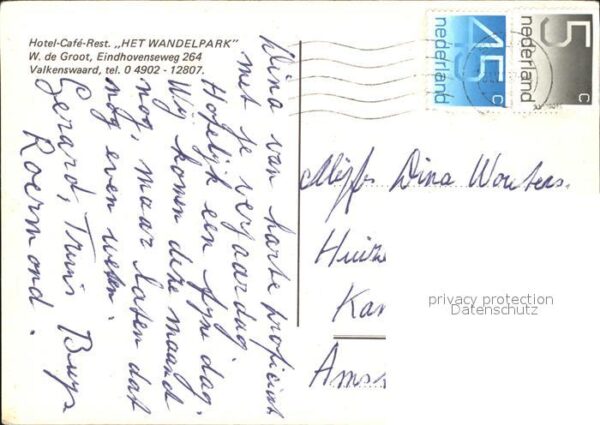 Hotel-Café-Rest. „HET WANDELPARK"
W. de Groot, Eindhovenseweg 264
Valkenswaard, tel. 0 4902 - 12807.
Dina van harte proficiat
met je verjaardag.
Hopelijk een fijne dag.
Wij komen deze maand
nog, maar laten dat
nog even weten.
Gerard, Truus Buys
Roermond.
45 c
nederland
5 c
nederland
Mejfr Dina Wouters.
Huize
Kan
Ams
privacy protection
Datenschutz